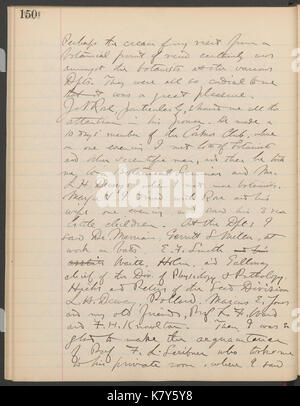 150
Perhaps the cream of my visit from a
botanical point of view certainly was
amongst the botanists at the various
Dpts. They were all so cordial to me
that it was a great pleasure.
J. N. Rose, particularly, showed me all the
attention in his power. He made a
10 days member of the Cosmos Club, where
on one evening I met lots of botanists
and other scientific men, and then he took
me to Botanical Seminar and Mr.
L. H. Dewey's where I met more botanists.
Mr. Rose and his
wife one evening and saw his 3 dear
little children. At the Dpts I
saw Dr. Merriam, Gerrit S. Miller, at
work on bats. E. F. Smith
Waite, Holm, and Galloway
chief of the Div. of Physiology & Pathology
Hicks and Pieters of the Seed Division
L. H. Dewey, Pollard, Marcus E. Jones
and my old friends, Prof. L. F. Ward
and F. H. Knowlton. Then I was so
glad to make the acquaintance
of Prof. F. L. Scribner who took me
to his private room, where I said
alamy
alamy
Image ID: K7Y5Y8
www.alamy.com